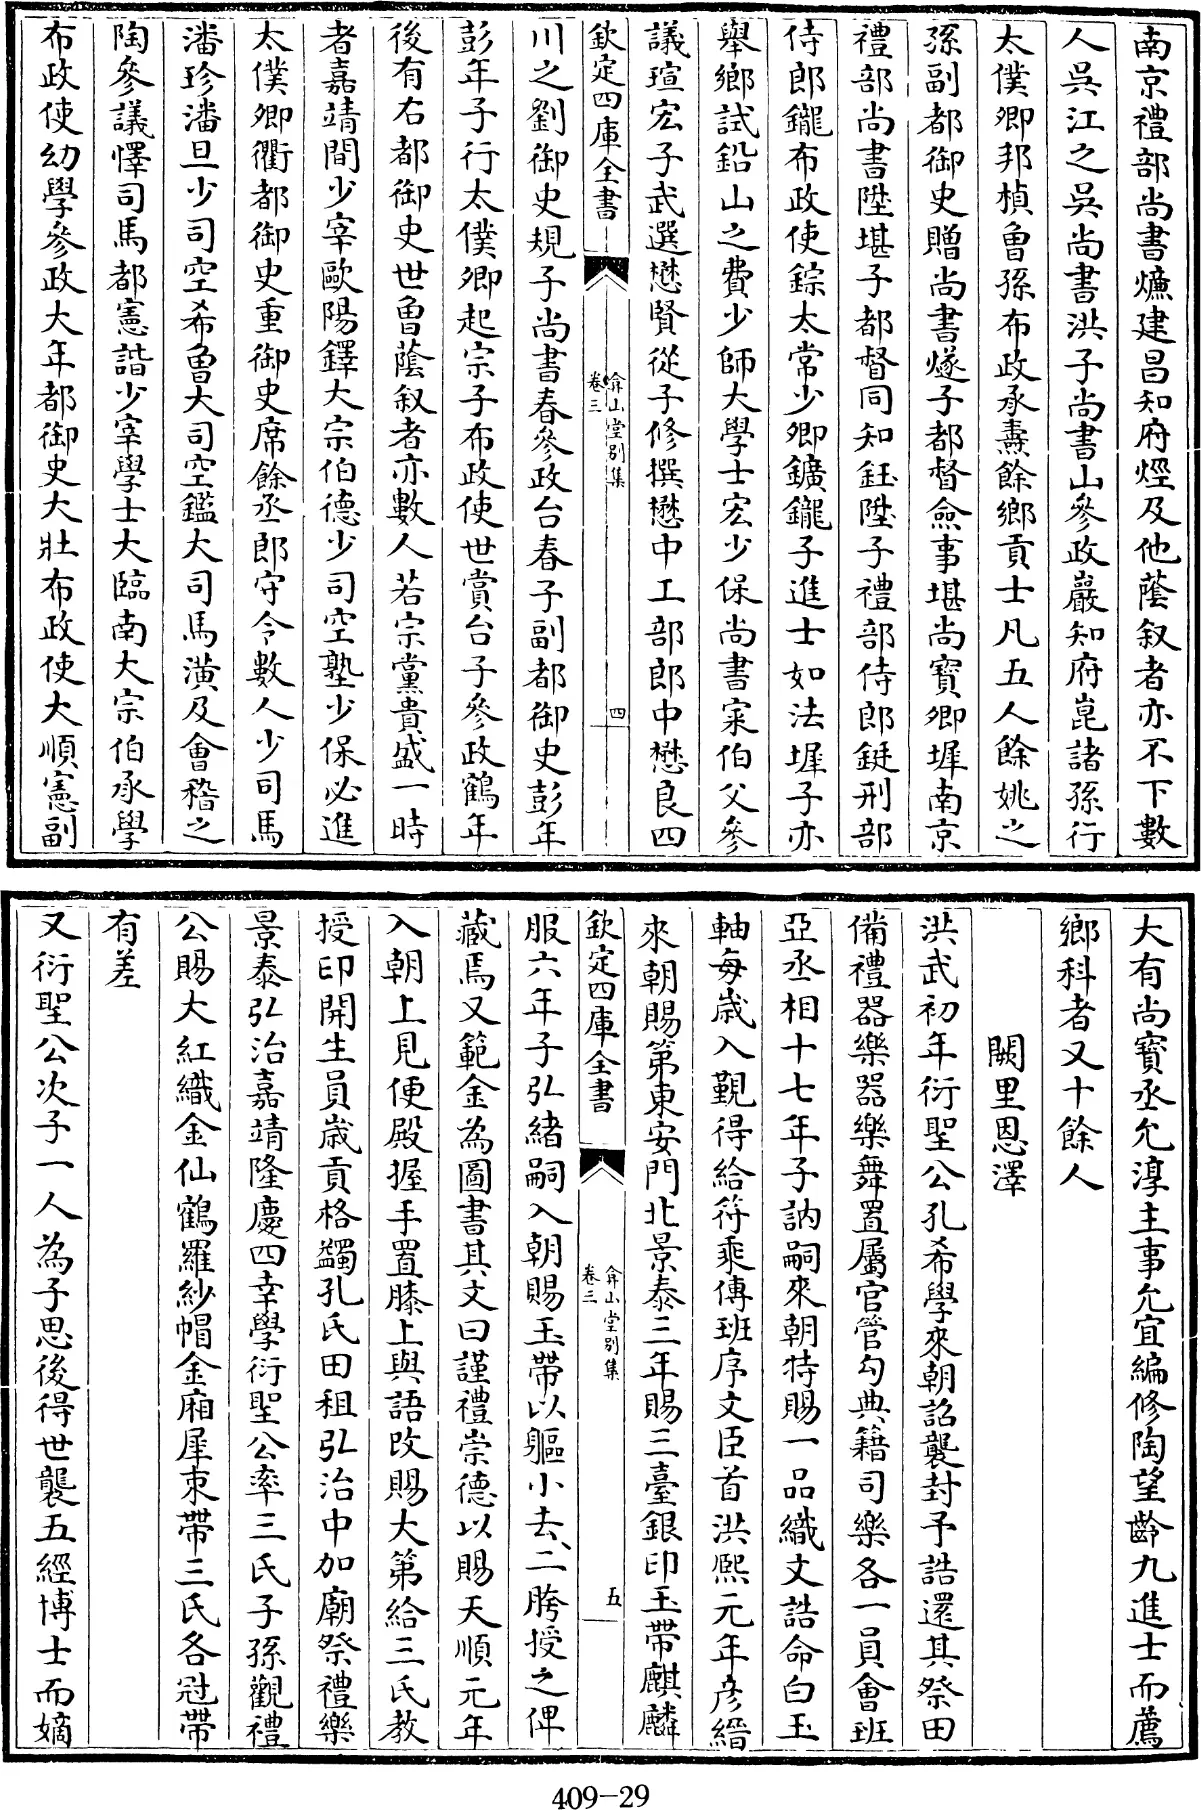 南京禮部尚書爊建昌知府煙及他蔭叙者亦不下數
人吳江之吳尚書洪子尚書山參政巖知府崑諸孫行
太僕卿邦楨曾孫布政承燾餘鄉貢士凡五人餘姚之
孫副都御史贈尚書燧子都督僉事堪尚寶卿墀南京
禮部尚書陞堪子都督同知鈺陞子禮部侍郎鋌刑部
侍郎鑨布政使錝太常少卿鑛鑨子進士如法墀子亦
舉鄉試鉛山之費少師大學士宏少保尚書寀伯父參
議瑄宏子武選懋賢從子修撰懋中工部郎中懋良四
欽定四庫全書
弇山堂别集
卷三
四
川之劉御史規子尚書春參政台春子副都御史彭年
彭年子行太僕卿起宗子布政使世賞台子參政鶴年
後有右都御史世曾蔭叙者亦數人若宗黨貴盛一時
者嘉靖間少宰歐陽鐸大宗伯德少司空塾少保必進
太僕卿衢都御史重御史席餘丞郎守令數人少司馬
潘珍潘旦少司空希曾大司空鑑大司馬潢及會稽之
陶參議懌司馬都憲諧少宰學士大臨南大宗伯承學
布政使幼學參政大年都御史大壯布政使大順憲副
大有尚寶丞允淳主事允宜編修陶望齡九進士而薦
鄉科者又十餘人
闕里恩澤
洪武初年衍聖公孔希學來朝詔襲封予誥還其祭田
備禮器樂器樂舞置屬官管勾典籍司樂各一員會班
亞丞相十七年子訥嗣來朝特賜一品織文誥命白玉
軸每歳入覲得給符乘傳班序文臣首洪熙元年彦縉
來朝賜第東安門北景泰三年賜三臺銀印玉帶麒麟
欽定四庫全書
弇山堂别集
卷三
五
服六年子弘緒嗣入朝賜玉帶以軀小去二胯授之俾
藏焉又範金為圖書其文曰謹禮崇德以賜天順元年
入朝上見便殿握手置膝上與語改賜大第給三氏教
授印開生員歳貢格蠲孔氏田租弘治中加廟祭禮樂
景泰弘治嘉靖隆慶四幸學衍聖公率三氏子孫觀禮
公賜大紅織金仙鶴羅紗帽金廂犀束帶三氏各冠帶
有差
又衍聖公次子一人為子思後得世襲五經博士而嫡
409-29